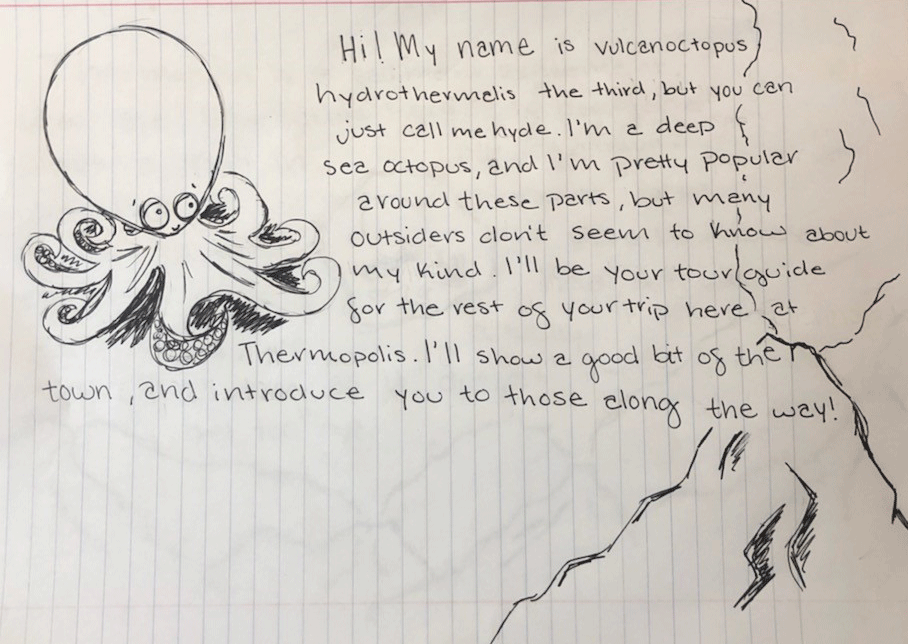 Hi! My name is vulcanoctopus
hydrothermalis the third, but you can
just call me hyde. I'm a deep
sea octopus, and I'm pretty popular
around these parts, but many
outsiders don't seem to know about
my kind. I'll be your tour guide
for the rest of your trip here at
Thermopolis. I'll show a good bit of the
town, and introduce you to those along the way!